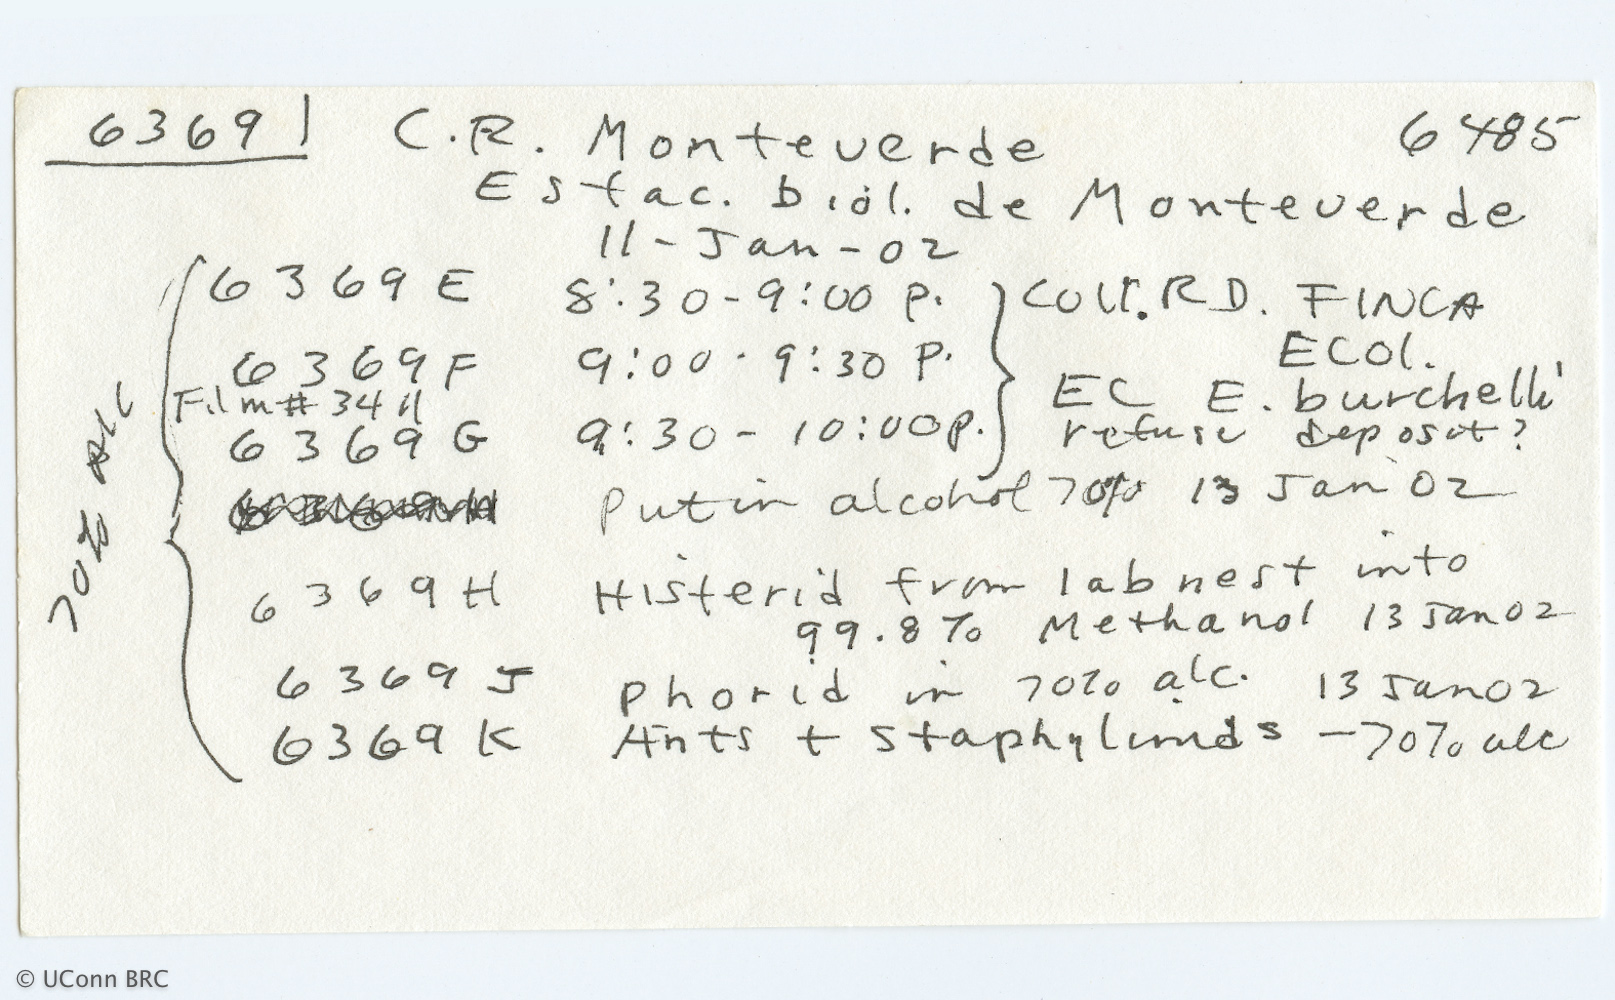 6369 C.R. Monteverde 6485
Estac. biol. de Monteverde
11-Jan-02
6369 E 8:30-9:00 p. Coll. R D. FINCA
ECOl.
6369 F 9:00-9:30 p.
EC E. burchelli
Film# 34
6369 G 9:30-10:00p. refuse deposit?
put in alcohol 70% 13 Jan 02
70% Alc
6369 H Histerid from lab nest into
99.8% Methanol 13 Jan 02
6369 J phorid in 70% alc. 13 Jan 02
6369 K Ants + Staphylinids -70% alc
© UConn BRC